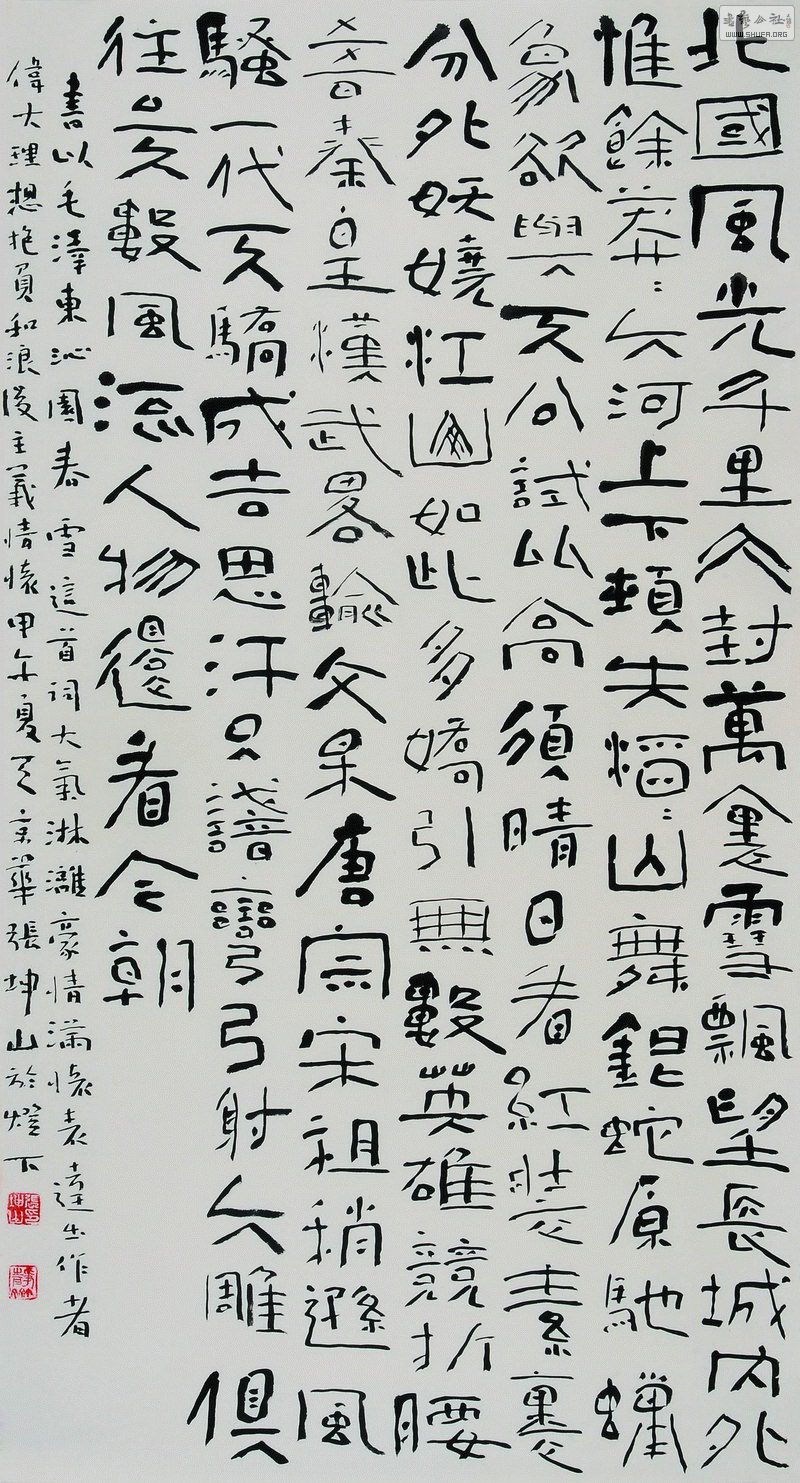 北國風光千里仌封萬裏雪飄望長城內外
惟餘莽〻大河上下頓失滔〻山舞銀蛇原馳蠟
象欲與天公試比高須晴日看紅裝素裹
分外妖嬈江山如此多嬌引無數英雄競折腰
惜秦皇漢武略輸文采唐宗宋祖稍遜風
騷一代天驕成吉思汗只識彎弓射大雕俱
往矣數風流人物還看今朝
書以毛澤東沁園春雪這首詞大氣淋漓豪情滿懷表達出作者
偉大理想抱負和浪漫主義情懷甲午夏天京華張坤山於燈下
書藝公社
WWW.SHUFA.ORG